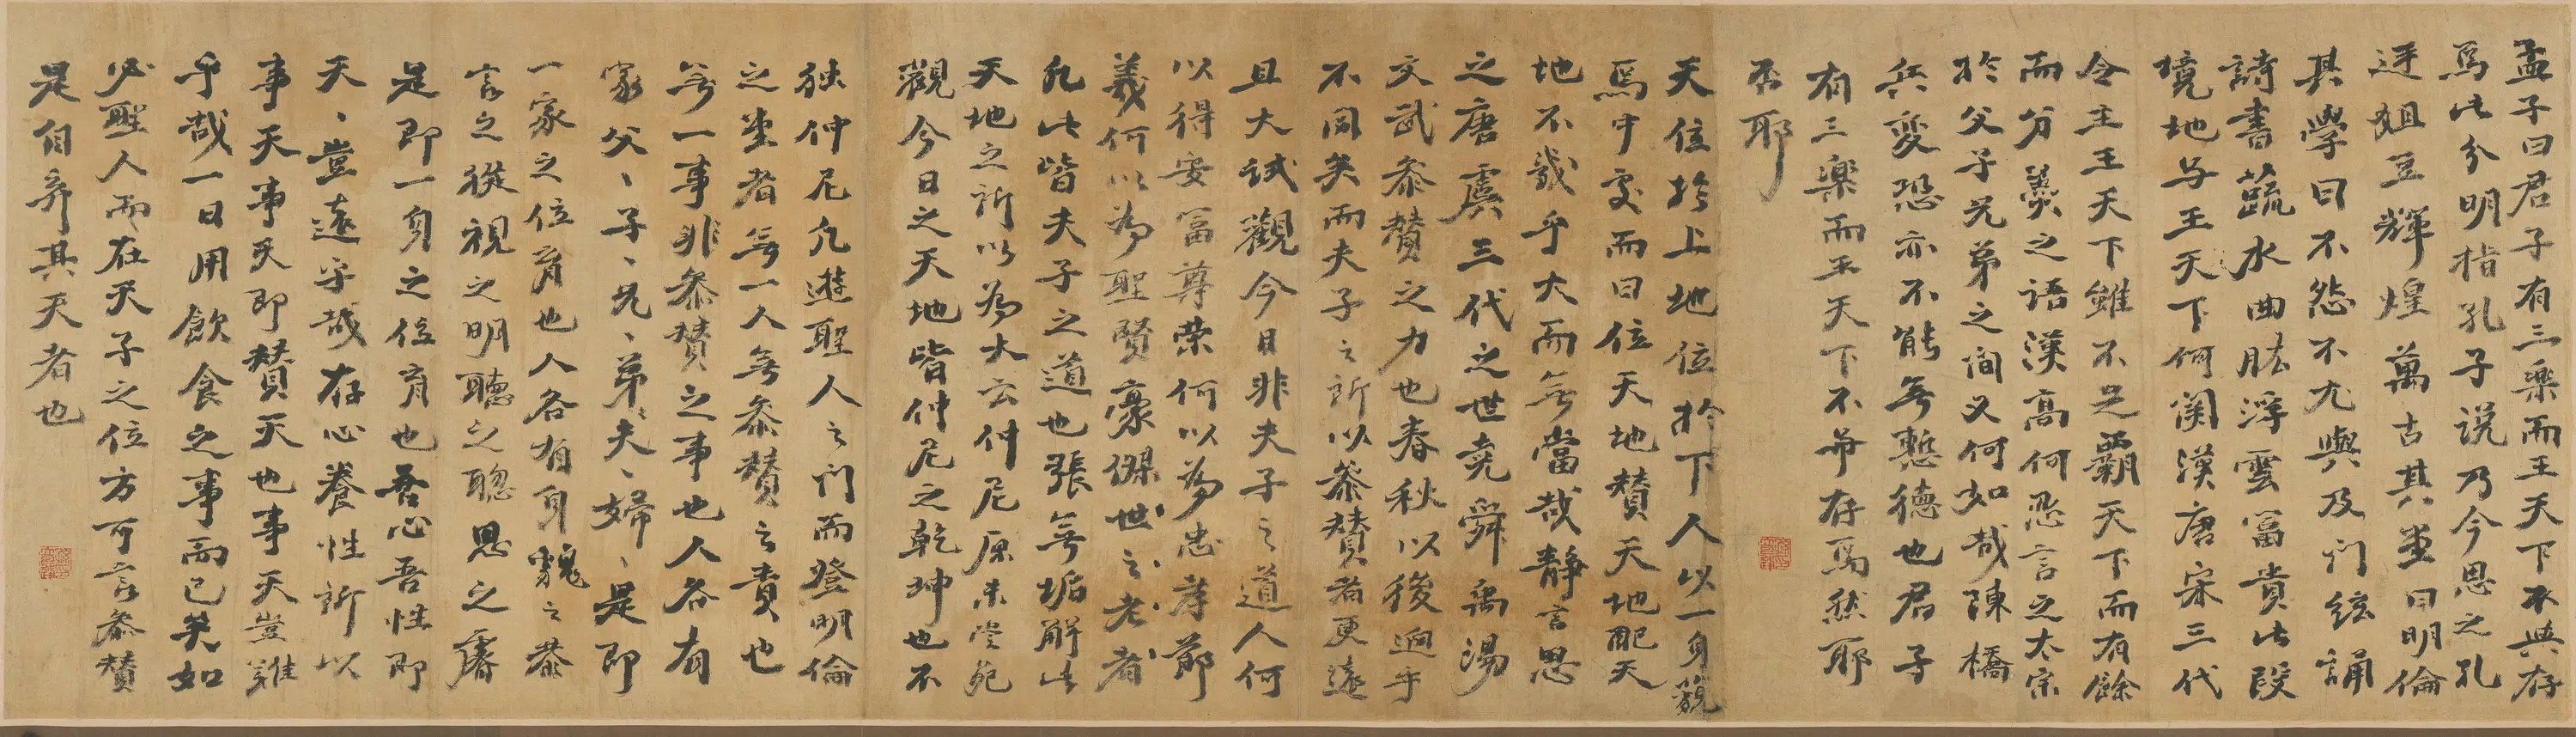 孟子曰君子有三樂而王天下不與存
焉此分明指孔子說乃今思之孔
廷俎豆輝煌萬古其堂曰明倫
其學曰不怨不尤與及門絃誦
詩書蔬水曲肱浮雲富貴此段
境地与王天下何關漢唐宋三代
令主王天下雖不足霸天下而有餘
而分羹之語漢高何忍言之太宗
於父子兄弟之間又何如哉陳橋
兵變恐亦不能無慙德也君子
有三樂而王天下不與存焉然耶
否耶
天位於上地位於下人以一身藐
焉中處而曰位天地贊天地配天
地不幾乎大而無當哉靜言思
之唐虞三代之世堯舜禹湯
文武參贊之力也春秋以後迥乎
不同矣而夫子之所以參贊者更遠
且大試觀今日非夫子之道人何
以得安富尊榮何以為忠孝節
義何以為聖賢豪傑世世老老者
凡此皆夫子之道也張無垢解此
天地之所以為大云仲尼原未嘗死
觀今日之天地皆仲尼之乾坤也不
獨仲尼凡遊聖人之門而登明倫
之堂者無一人無參贊之責也
無一事非參贊之事也人各有
家父父子子兄兄弟弟夫夫婦婦是即
一家之位育也人各有身貌之恭
言之從視之明聽之聰思之睿
是即一身之位育也吾心吾性即
天天豈遠乎哉存心養性所以
事天事天即贊天也事天豈難
乎哉一日用飲食之事而已矣如
必聖人而在天子之位方可言參贊
是自弃其天者也